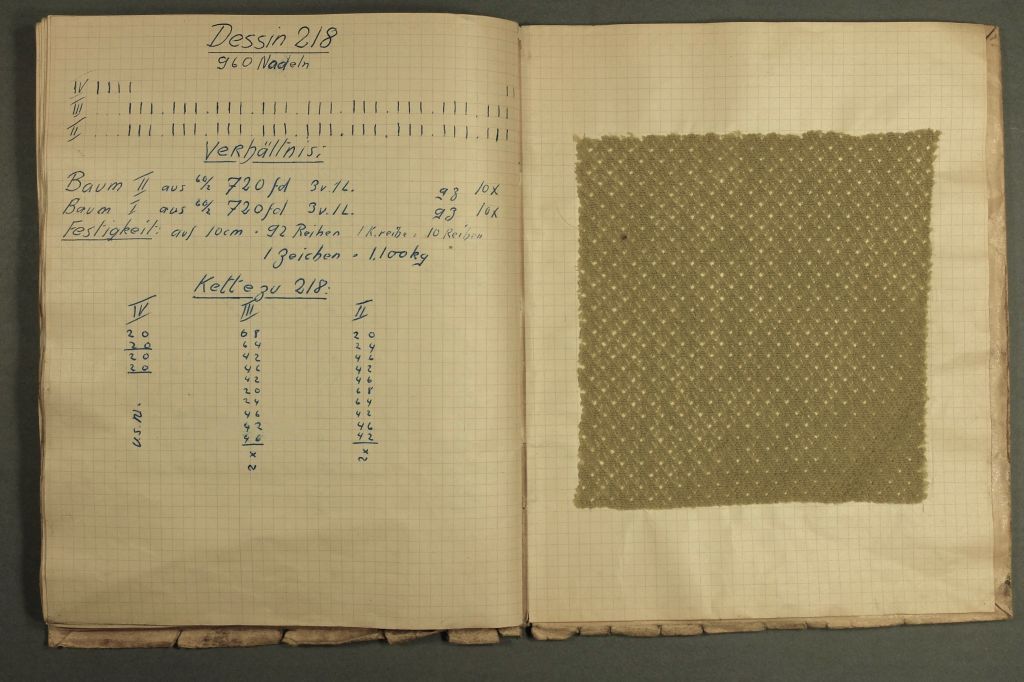 Dessin 218
960 Nadeln
IV
III
II
Verhältnis:
Baum II aus 60/2 720 fd 3 v. 1 L. 93 10x
Baum I aus 60/2 720 fd 3 v. 1 L. 93 10x
Festigkeit: auf 10cm = 92 Reihen 1 K.reihe = 10 Reihen
1 Zeichen = 1,100kg
Kette zu 218:
IV III II
20 68 20
20 64 24
20 42 46
20 46 42
42 46
20 68
24 64
46 42
42 46
46 42
u.s.w. 2x 2x